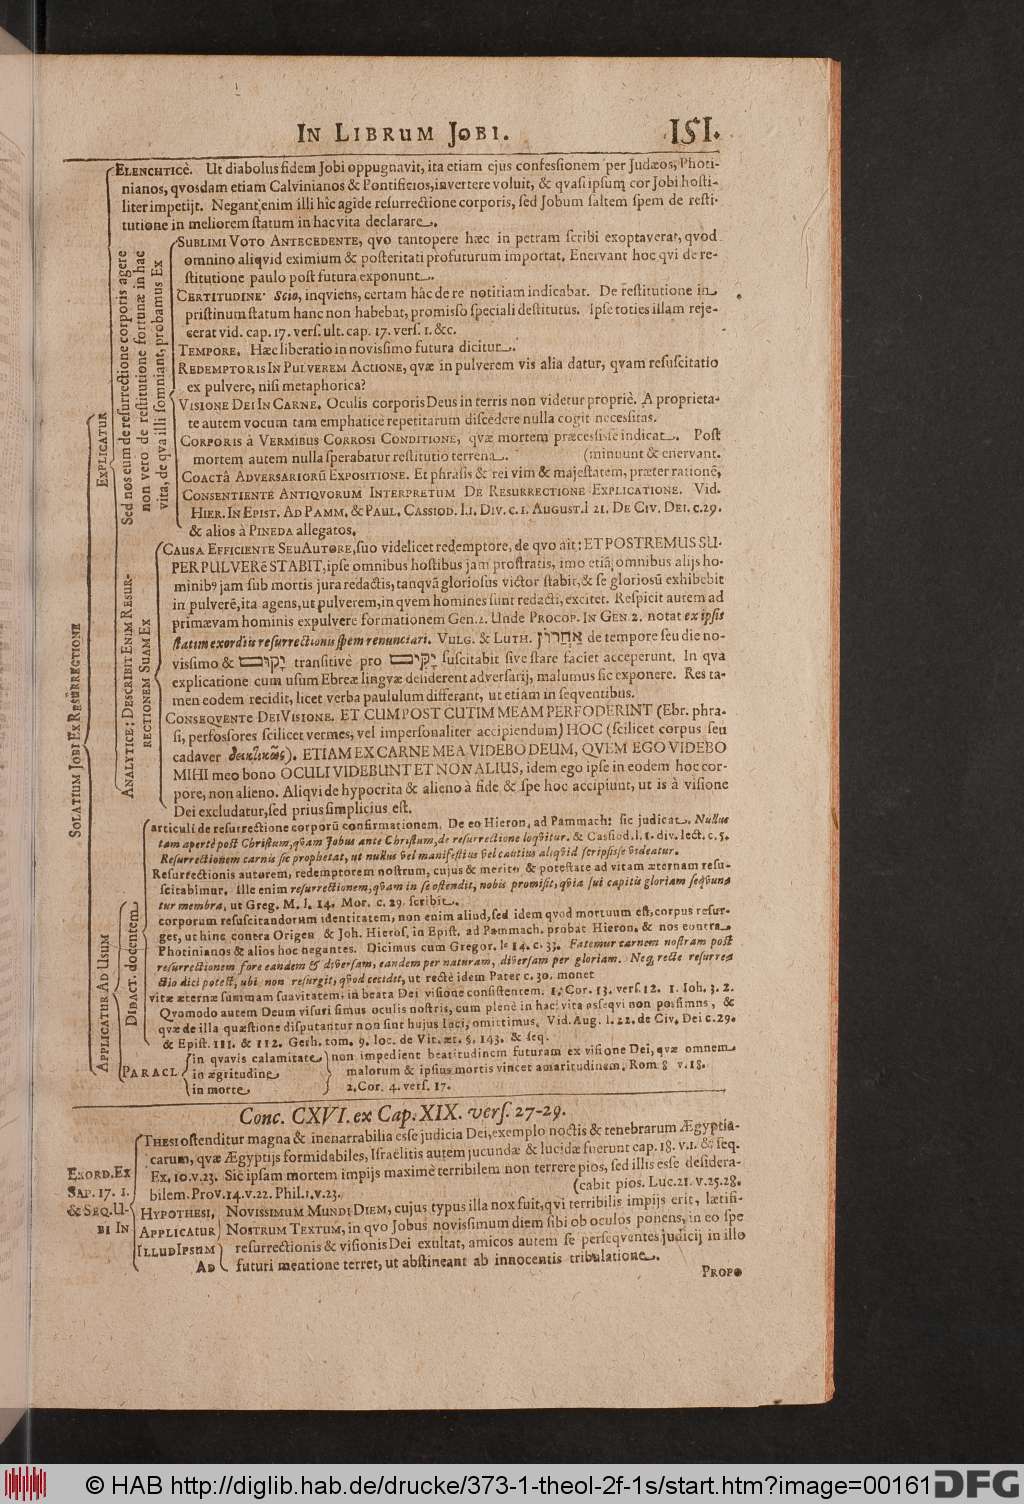 IN LIBRUM JOBI. 151.
SOLATIUM JOBI EX RESURRECTIONE
EXPLICATUR
ELENCHTICÈ. Ut diabolus fidem Jobi oppugnavit, ita etiam ejus confessionem per Judæos, Photi-
nianos, qvosdam etiam Calvinianos & Pontificios, invertere voluit, & qvasi ipsum cor Jobi hosti-
liter impetijt. Negant enim illi hîc agi de resurrectione corporis, sed Jobum saltem spem de resti-
tutione in meliorem statum in hac vita declarare.
Sed nos eum de resurrectione corporis agere
non vero de restitutione fortunæ in hac
vita, de qva illi somniant, probamus Ex
SUBLIMI VOTO ANTECEDENTE, qvo tantopere hæc in petram scribi exoptaverat, qvod
omnino aliqvid eximium & posteritati profuturum importat. Enervant hoc qvi de re-
stitutione paulo post futura exponunt.
CERTITUDINE Scio, inqviens, certam hâc de re notitiam indicabat. De restitutione in
pristinum statum hanc non habebat, promisso speciali destitutus. Ipse toties illam reje-
cerat vid. cap. 17. vers. ult. cap. 17. vers. 1. &c.
TEMPORE. Hæc liberatio in novissimo futura dicitur.
REDEMPTORIS IN PULVEREM ACTIONE, qvæ in pulverem vis alia datur, qvam resuscitatio
ex pulvere, nisi metaphorica?
VISIONE DEI IN CARNE. Oculis corporis Deus in terris non videtur propriè. A proprieta-
te autem vocum tam emphaticè repetitarum discedere nulla cogit necessitas.
CORPORIS à VERMIBUS CORROSI CONDITIONE, qvæ mortem præcessisse indicat. Post
mortem autem nulla sperabatur restitutio terrena. (minuunt & enervant.
COACTÂ ADVERSARIORŨ EXPOSITIONE. Et phrasis & rei vim & majestatem, præter rationẽ,
CONSENTIENTE ANTIQVORUM INTERPRETUM DE RESURRECTIONE EXPLICATIONE. Vid.
HIER. IN EPIST. AD PAMM. & PAUL. CASSIOD. l.1. DIV. c.1. AUGUST. l 21. DE CIV. DEI. c.29.
& alios à PINEDA allegatos.
ANALYTICE; DESCRIBIT ENIM RESUR-
RECTIONEM SUAM EX
CAUSA EFFICIENTE SEU AUTORE, suo videlicet redemptore, de qvo ait: ET POSTREMUS SU-
PER PULVERẽ STABIT, ipse omnibus hostibus jam prostratis, imo etiã omnibus alijs ho-
minibꝰ jam sub mortis jura redactis, tanqvã gloriosus victor stabit, & se gloriosũ exhibebit
in pulverẽ, ita agens, ut pulverem, in qvem homines sunt redacti, excitet. Respicit autem ad
primævam hominis ex pulvere formationem Gen. 2. Unde PROCOP. IN GEN. 2. notat ex ipsis
statim exordiis resurrectionis spem renunciari. VULG. & LUTH. אַחֲרוֹן de tempore seu die no-
vissimo & יָקוּם transitivè pro יָקִים suscitabit sive stare faciet acceperunt. In qva
explicatione cum usum Ebreæ lingvæ desiderent adversarij, malumus sic exponere. Res ta-
men eodem recidit, licet verba paululum differant, ut etiam in seqventibus.
CONSEQVENTE DEI VISIONE. ET CUM POST CUTIM MEAM PERFODERINT (Ebr. phra-
si, perfossores scilicet vermes, vel impersonaliter accipiendum) HOC (scilicet corpus seu
cadaver δεικτικῶς). ETIAM EX CARNE MEA VIDEBO DEUM, QVEM EGO VIDEBO
MIHI meo bono OCULI VIDEBUNT ET NON ALIUS, idem ego ipse in eodem hoc cor-
pore, non alieno. Aliqvi de hypocrita & alieno à fide & spe hoc accipiunt, ut is à visione
Dei excludatur, sed prius simplicius est.
APPLICATUR AD USUM
DIDACT. docentem
articuli de resurrectione corporũ confirmationem. De eo Hieron. ad Pammach: sic judicat. Nullus
tam apertè post Christum, qvam Jobus ante Christum, de resurrectione loqvitur. & Cassiod. l. 1. div. lect. c. 5.
Resurrectionem carnis sic prophetat, ut nullus vel manifestius vel cautius aliqvid scripsisse videatur.
Resurrectionis autorem, redemptorem nostrum, cujus & merito & potestate ad vitam æternam resu-
scitabimur. Ille enim resurrectionem, qvam in se ostendit, nobis promisit, qvia sui capitis gloriam seqvun-
tur membra, ut Greg. M. l. 14. Mor. c. 29. scribit.
corporum resuscitandorum identitatem, non enim aliud, sed idem qvod mortuum est, corpus resur-
get, ut hinc contra Origen & Joh. Hieros. in Epist. ad Pammach. probat Hieron. & nos contra
Photinianos & alios hoc negantes. Dicimus cum Gregor. l. 14. c. 33. Fatemur carnem nostram post
resurrectionem fore eandem & diversam, eandem per naturam, diversam per gloriam. Neq; recte resurre-
ctio dici potest, ubi non resurgit, qvod cecidit, ut rectè idem Pater c. 30. monet
vitæ æternæ summam suavitatem, in beata Dei visione consistentem. 1. Cor. 13. vers. 12. 1. Joh. 3. 2.
Qvomodo autem Deum visuri simus oculis nostris, cum plenè in hac vita asseqvi non possimus, &
qvæ de illa quæstione disputantur non sint hujus loci, omittimus. Vid. Aug. l. 22. de Civ. Dei c. 29.
& Epist. 111. & 112. Gerh. tom. 9. loc. de Vit. æt. §. 143. & seq.
PARACL.
in qvavis calamitate
in ægritudine
in morte
non impedient beatitudinem futuram ex visione Dei, qvæ omnem
malorum & ipsius mortis vincet amaritudinem. Rom 8 v. 18.
2. Cor. 4. vers. 17.
Conc. CXVI. ex Cap. XIX. vers. 27-29.
EXORD. EX
SAP. 17. 1.
& SEQ. U-
BI IN
THESI ostenditur magna & inenarrabilia esse judicia Dei, exemplo noctis & tenebrarum Ægyptia-
carum, qvæ Ægyptijs formidabiles, Israëlitis autem jucundæ & lucidæ fuerunt cap. 18. v. 1. & seq.
Ex. 10. v. 23. Sic ipsam mortem impijs maximè terribilem non terrere pios, sed illis esse desidera-
bilem. Prov. 14. v. 22. Phil. 1. v. 23. (cabit pios. Luc. 21. v. 25. 28.
HYPOTHESI,
APPLICATUR
ILLUD IPSUM
AD
NOVISSIMUM MUNDI DIEM, cujus typus illa nox fuit, qvi terribilis impijs erit, lætifi-
NOSTRUM TEXTUM, in qvo Jobus novissimum diem sibi ob oculos ponens, in eo spe
resurrectionis & visionis Dei exultat, amicos autem se perseqventes judicij in illo
futuri mentione terret, ut abstineant ab innocentis tribulatione.
PROPO
© HAB http://diglib.hab.de/drucke/373-1-theol-2f-1s/start.htm?image=00161
DFG